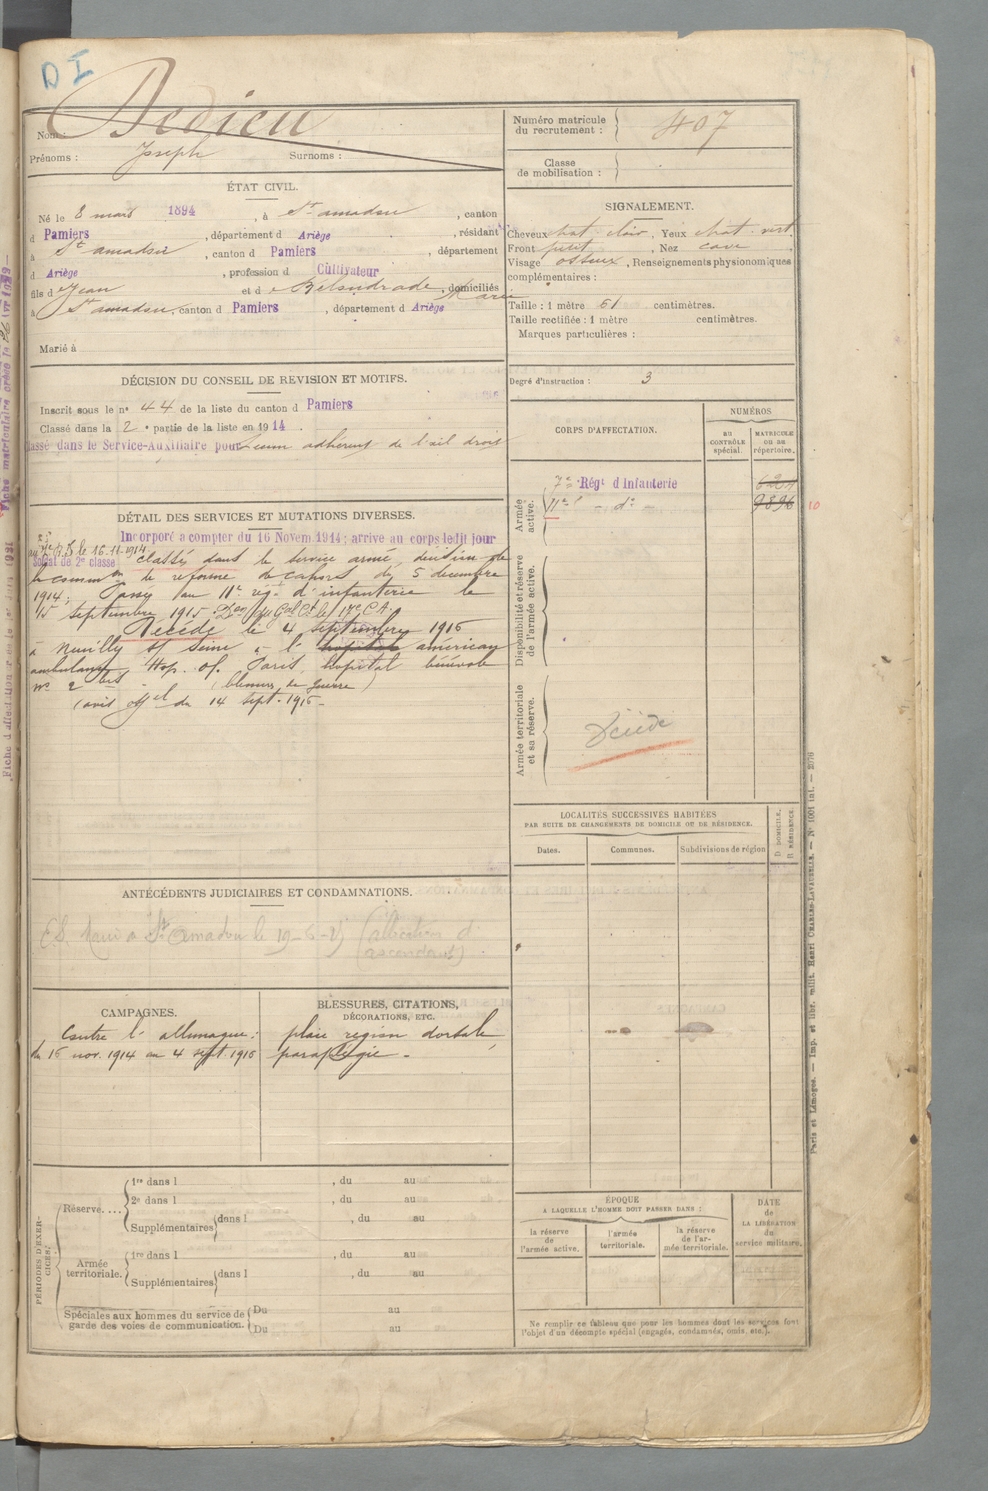 D I
Nom : Dedieu
Prénoms : Joseph Surnoms :
Numéro matricule
du recrutement : 407
Classe
de mobilisation :
ÉTAT CIVIL.
Né le 8 mars 1894, à St amadou, canton
d Pamiers, département d Ariège, résidant
à St amadou, canton d Pamiers, département
d Ariège, profession d Cultivateur
fils d e Jean et d e Marie, domiciliés
à St amadou, canton d Pamiers, département d Ariège
Marié à
SIGNALEMENT.
Cheveux chat. clair, Yeux chat. vert,
Front petit, Nez cave,
Visage osseux, Renseignements physionomiques
complémentaires :
Taille : 1 mètre 61 centimètres.
Taille rectifiée : 1 mètre centimètres.
Marques particulières :
Degré d'instruction : 3
DÉCISION DU CONSEIL DE REVISION ET MOTIFS.
Inscrit sous le no 44 de la liste du canton d Pamiers
Classé dans la 2e partie de la liste en 1914.
Classé dans le Service-Auxiliaire pour adhérent de l'œil droit
DÉTAIL DES SERVICES ET MUTATIONS DIVERSES.
Incorporé a compter du 16 Novem 1914; arrive au corps ledit jour
le 16.11.1914
Soldat de 2e classe classé dans le service armé, décision de
la common de reforme de cahors du 5 decembre
1914; Passé au 11e rég. d'infanterie le
15 septembre 1915. Don du Gal Ct la 17e C.A.
Décédé le 4 septembre 1916
à Neuilly s/ Seine à l' hopital américan
ambulance, Hop. of. Paris, hopital bénévole
no 2 bis (blessures de guerre)
(avis offel du 14 sept. 1916
CORPS D'AFFECTATION.
NUMÉROS
AU
CONTRÔLE
spécial.
MATRICULE
ou au
répertoire.
Armée
active.
7e Régt d'Infanterie
11e - do - 9896 10
Disponibilité et réserve
de l'armée active.
Armée territoriale
et sa réserve.
Décédé
LOCALITÉS SUCCESSIVES HABITÉES
PAR SUITE DE CHANGEMENTS DE DOMICILE OU DE RÉSIDENCE.
Dates. Communes. Subdivisions de région
D DOMICILE.
R RÉSIDENCE.
ANTÉCÉDENTS JUDICIAIRES ET CONDAMNATIONS.
à St Amadou le 19-6- (allocation d'
ascendants)
CAMPAGNES.
Contre l'allemagne :
du 16 nov. 1914 au 4 sept. 1916
BLESSURES, CITATIONS,
DÉCORATIONS, ETC.
plaie region dorsale,
paraplégie.
PÉRIODES D'EXER-
CICES.
Réserve....
1re dans l , du au
2e dans l , du au
Supplémentaires dans l , du au
Armée
territoriale.
1re dans l , du au
Supplémentaires dans l , du au
Spéciales aux hommes du service de
garde des voies de communication.
Du au
Du au
ÉPOQUE
A LAQUELLE L'HOMME DOIT PASSER DANS :
la réserve
de
l'armée active.
l'armée
territoriale.
la réserve
de l'ar-
mée territoriale.
DATE
de
LA LIBÉRATION
du
service militaire.
Ne remplir ce tableau que pour les hommes dont les services font
l'objet d'un décompte spécial (engagés, condamnés, omis, etc.).
Paris et Limoges. — Imp. et libr. milit. Henri CHARLES-LAVAUZELLE. — No 1001 int. — 2076